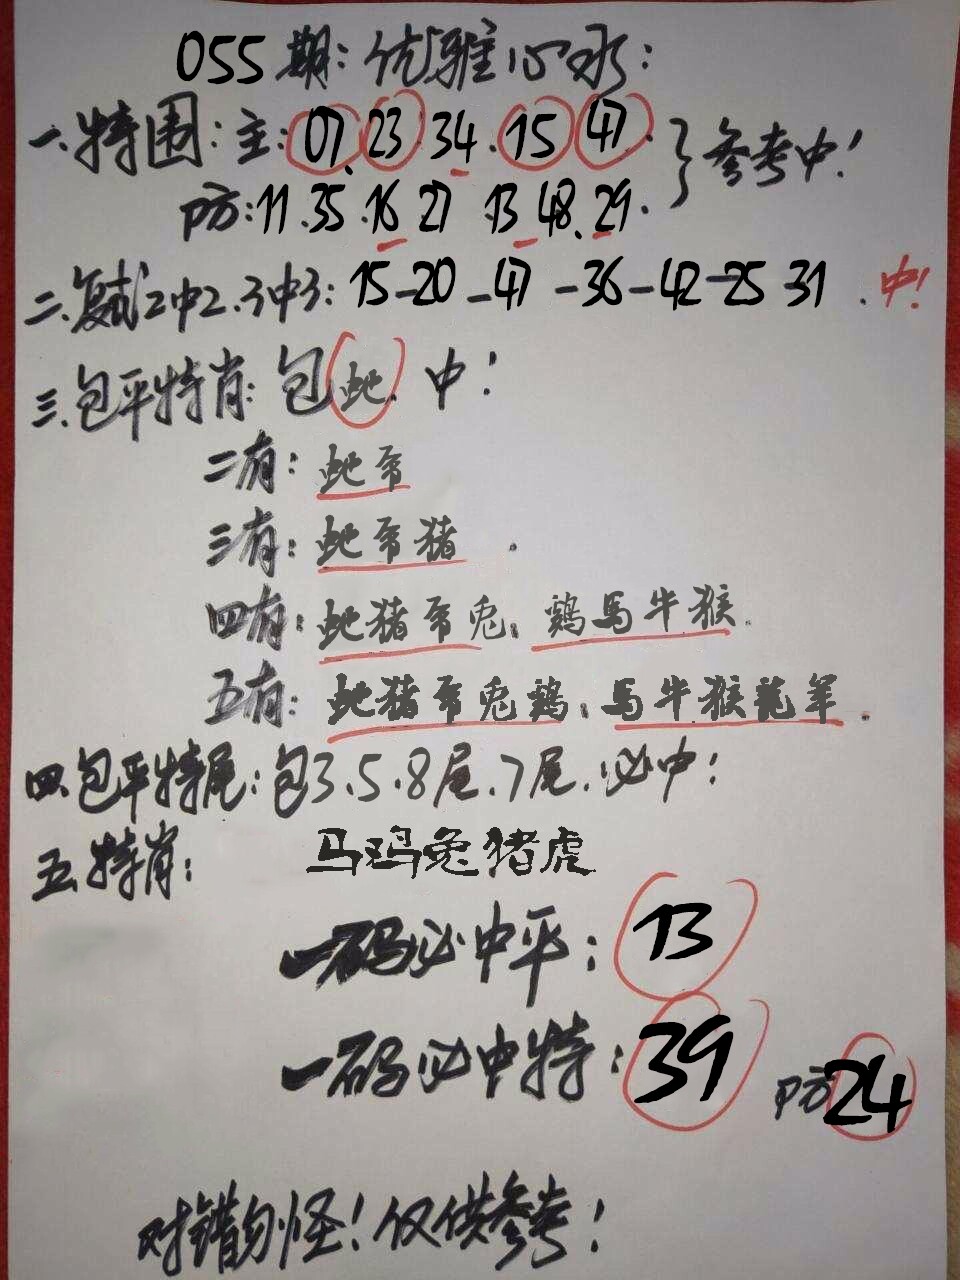 055期：优雅心水：
一.特围：主：07.23.34.15.47.
防：11.35.16.27 13.48.29.
}参考中！
二.复式2中2.3中3：15-20-47-36-42-25-31.中！
三.包平特肖：包蛇.中！
二有：蛇帝
三有：蛇帝猪.
四有：蛇猪帝兔.鷄馬牛猴.
五有：蛇猪帝兔鷄.馬牛猴龍羊.
四.包平特尾：包3.5.8尾.7尾.必中！
五.特肖：马鸡兔猪虎
一码必中平：13
一码必中特：39 防24
对错勿怪！仅供参考！